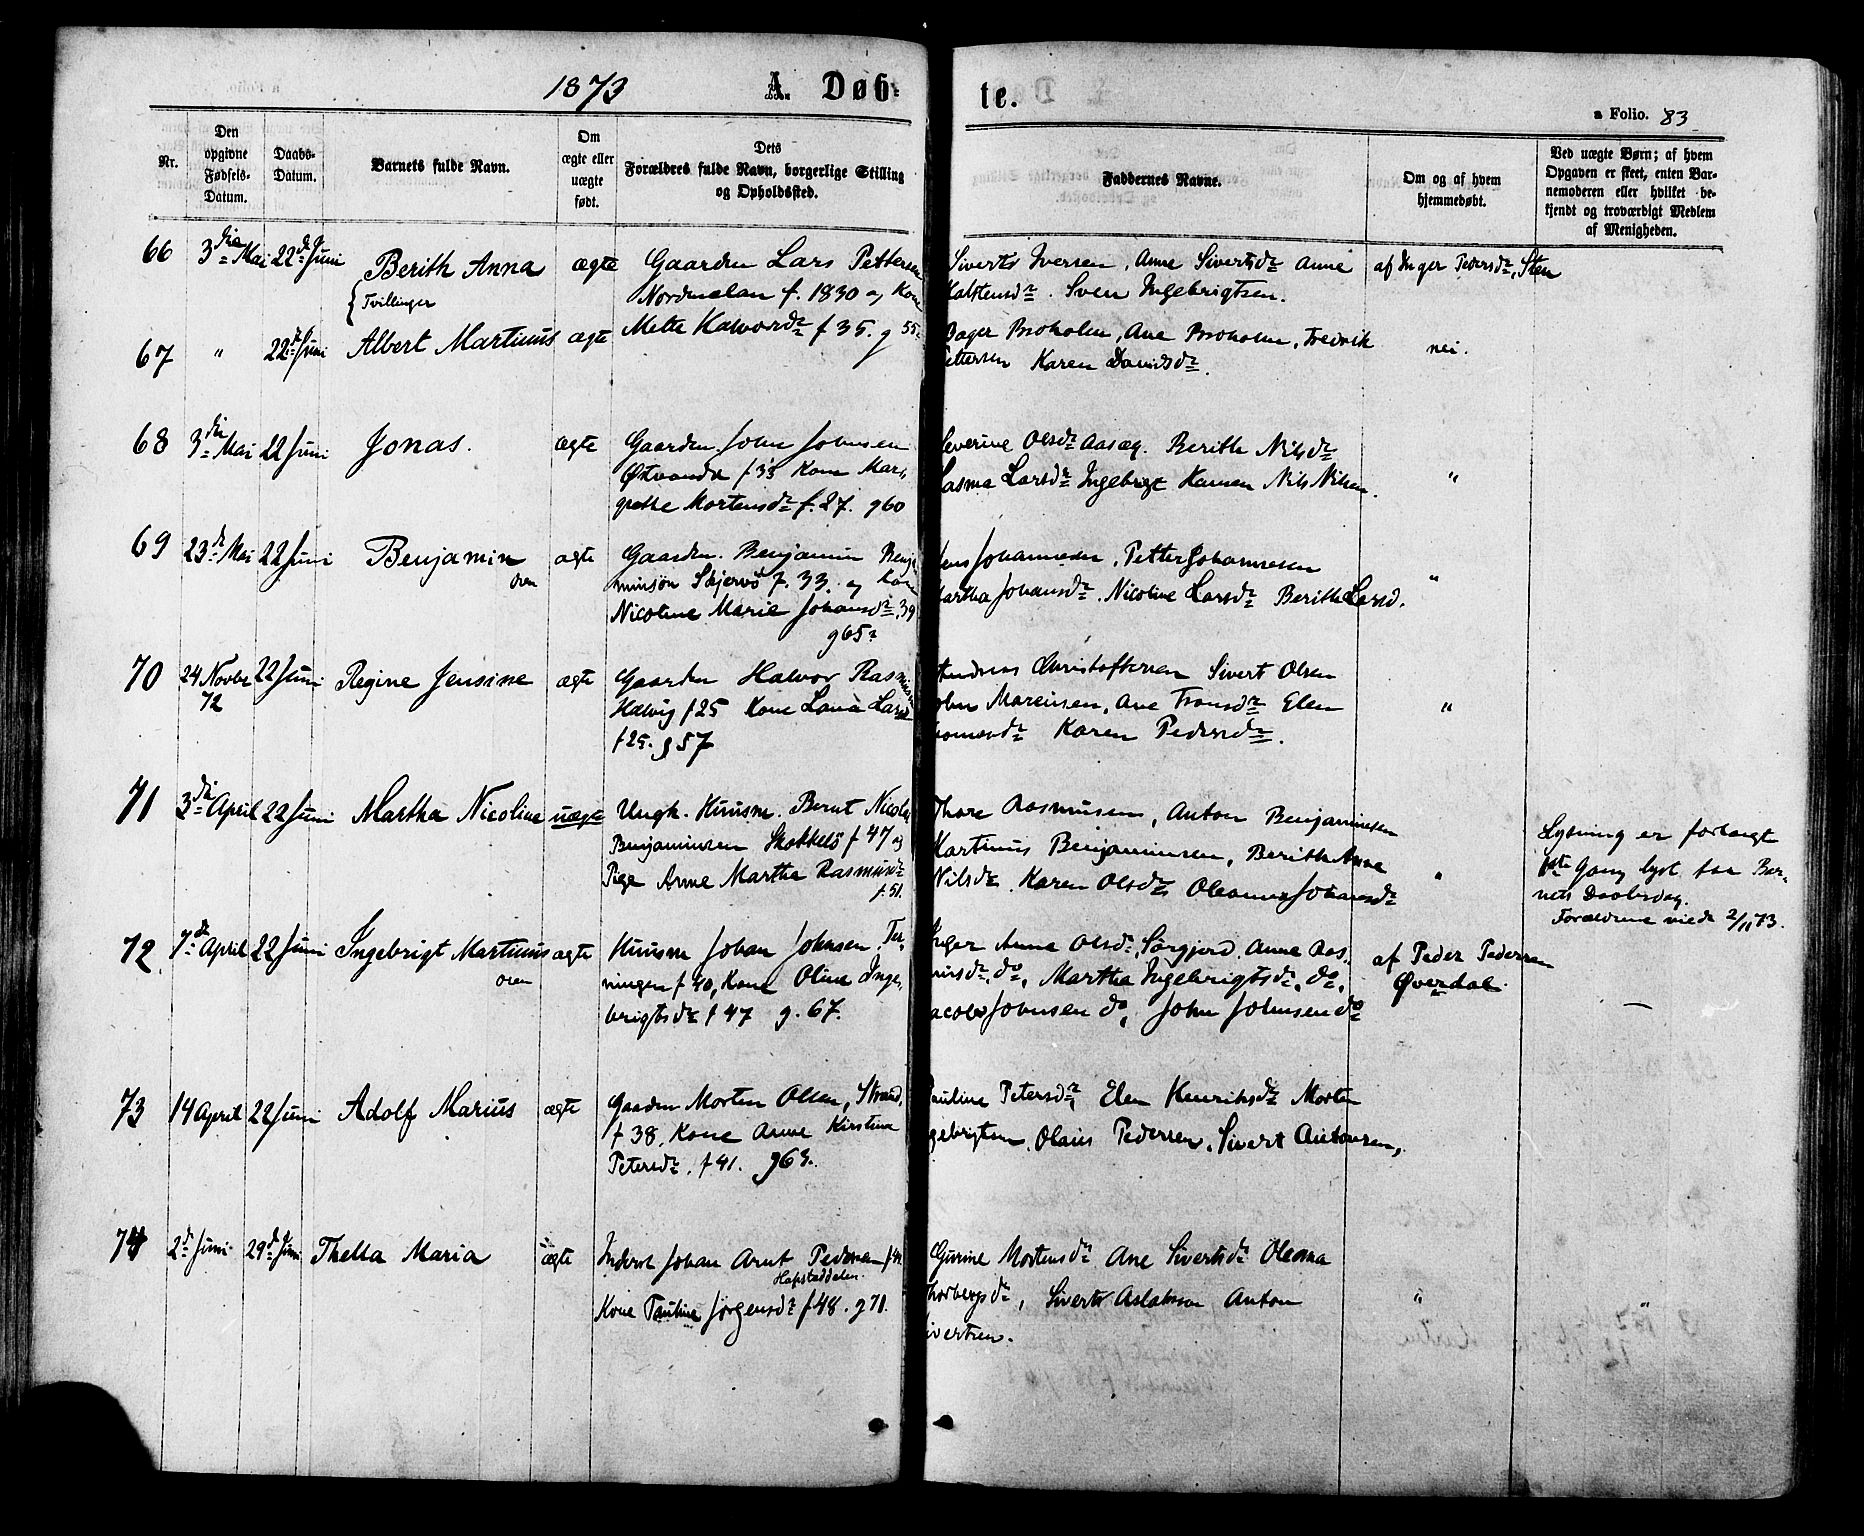 1873 A. Døbte.
a Folio. 83
Nr.
Den opgivne Fødsels-Datum.
Daabs-Datum.
Barnets fulde Navn.
Om ægte eller uægte født.
Dets Forældres fulde Navn, borgerlige Stilling og Opholdssted.
Faddernes Navne.
Om og af hvem hjemmedøbt.
Ved uægte Børn; af hvem Opgaven er skeet, enten Barnemoderen eller hvilket bekjendt og troværdigt Medlem af Menigheden.
66 3die Mai 22de Juni Berith Anna ægte
{Tvillinger
Gaarden Lars Pettersen
Nordmelan f. 1830 og Kone
Mette Halvorsdr f 35. g 55
Siverts Iversen, Anne Sivertsdr Anne
Halstensdr. Sven Ingebrigtsen.
af Inger Pedersdr, Sten
67 " 22de Juni Albert Martinus ægte
Bager Broholm, Ane Broholm, Fredrik
Pettersen Karen Davidsdr.
nei.
68 3die Mai 22 Juni Jonas. ægte
Gaarden. John Johnsen
f 33 Kone Mar-
grethe Mortensdr f. 27. g60
Severine Olsdr Aasæg. Berith Nilsdr
Larsdr Ingebrigt Hansen Nils Nilsen.
"
69 23de Mai 22 Juni Benjamin ægte
Gaarden. Benjamin Benja
minsøn Skjervø f. 33. og Kone
Nicoline Marie Johansdr. 39
g65
Jens Johannesen, Petter Johannesen
Martha Johansdr. Nicoline Larsdr Berith Larsd.
"
70 24 Novbr 72 22 Juni Regine Jensine ægte
Gaarden Halvor Rasmusen
Hælvig f 25 Kone Lava Larsd
f 25. g 57
Andreas Christoffersen Sivert Olsen
John Mareusen, Ane Fransdr Elen
Thomasdr Karen Pedersdr.
"
71 3die April 22 Juni Martha Nicoline uægte
Ungk. Huusm. Bernt Nicolai
Benjaminsen f 47 og
Pige Anne Martha Rasmusdr
f. 51.
Thore Rasmusen, Anton Benjaminsen
Martinus Benjaminsen, Berith Anne
Nilsdr. Karen Olsdr Oleanna Johansdr
"
Lysning er forlangt
1ste Gang lyst paa Bar-
nets Daabsdag.
Forældrene viede 2/11 73.
72 7de April 22 Juni Ingebrigt Martinus ægte
Huusm Johan Johnsen Ter-
ningen f 40, Kone Oline Inge-
brigtsdr f 47 g. 67.
Inger Anna Olsdr Sørgjerd. Anne Ras-
musdr, do, Martha Ingebrigtsdr, do,
Jacob Johnsen do, John Johnsen do
af Peder Pedersen
Øverdal.
—
73 14 April 22 Juni Adolf Marius ægte
Gaarden Morten Olsen, Strand,
f 38, Kone Anne Kirstine
Petersdr, f 41. g63.
Pauline Petersdr, Elen Henriksdr Morten
Ingebrigtsen, Olaus Pedersen, Sivert Antonsen,
74 2de Juni 29de Juni Thella Maria ægte
Inderst Johan Arnt Pedersen f 44
Kone Pauline Jørgensdr f 48. g 71.
Gurine Mortensdr Ane Sivertsdr Oleana
Thorbergsdr, Siverts Aslaksen Anton
Sivertsen.
" "